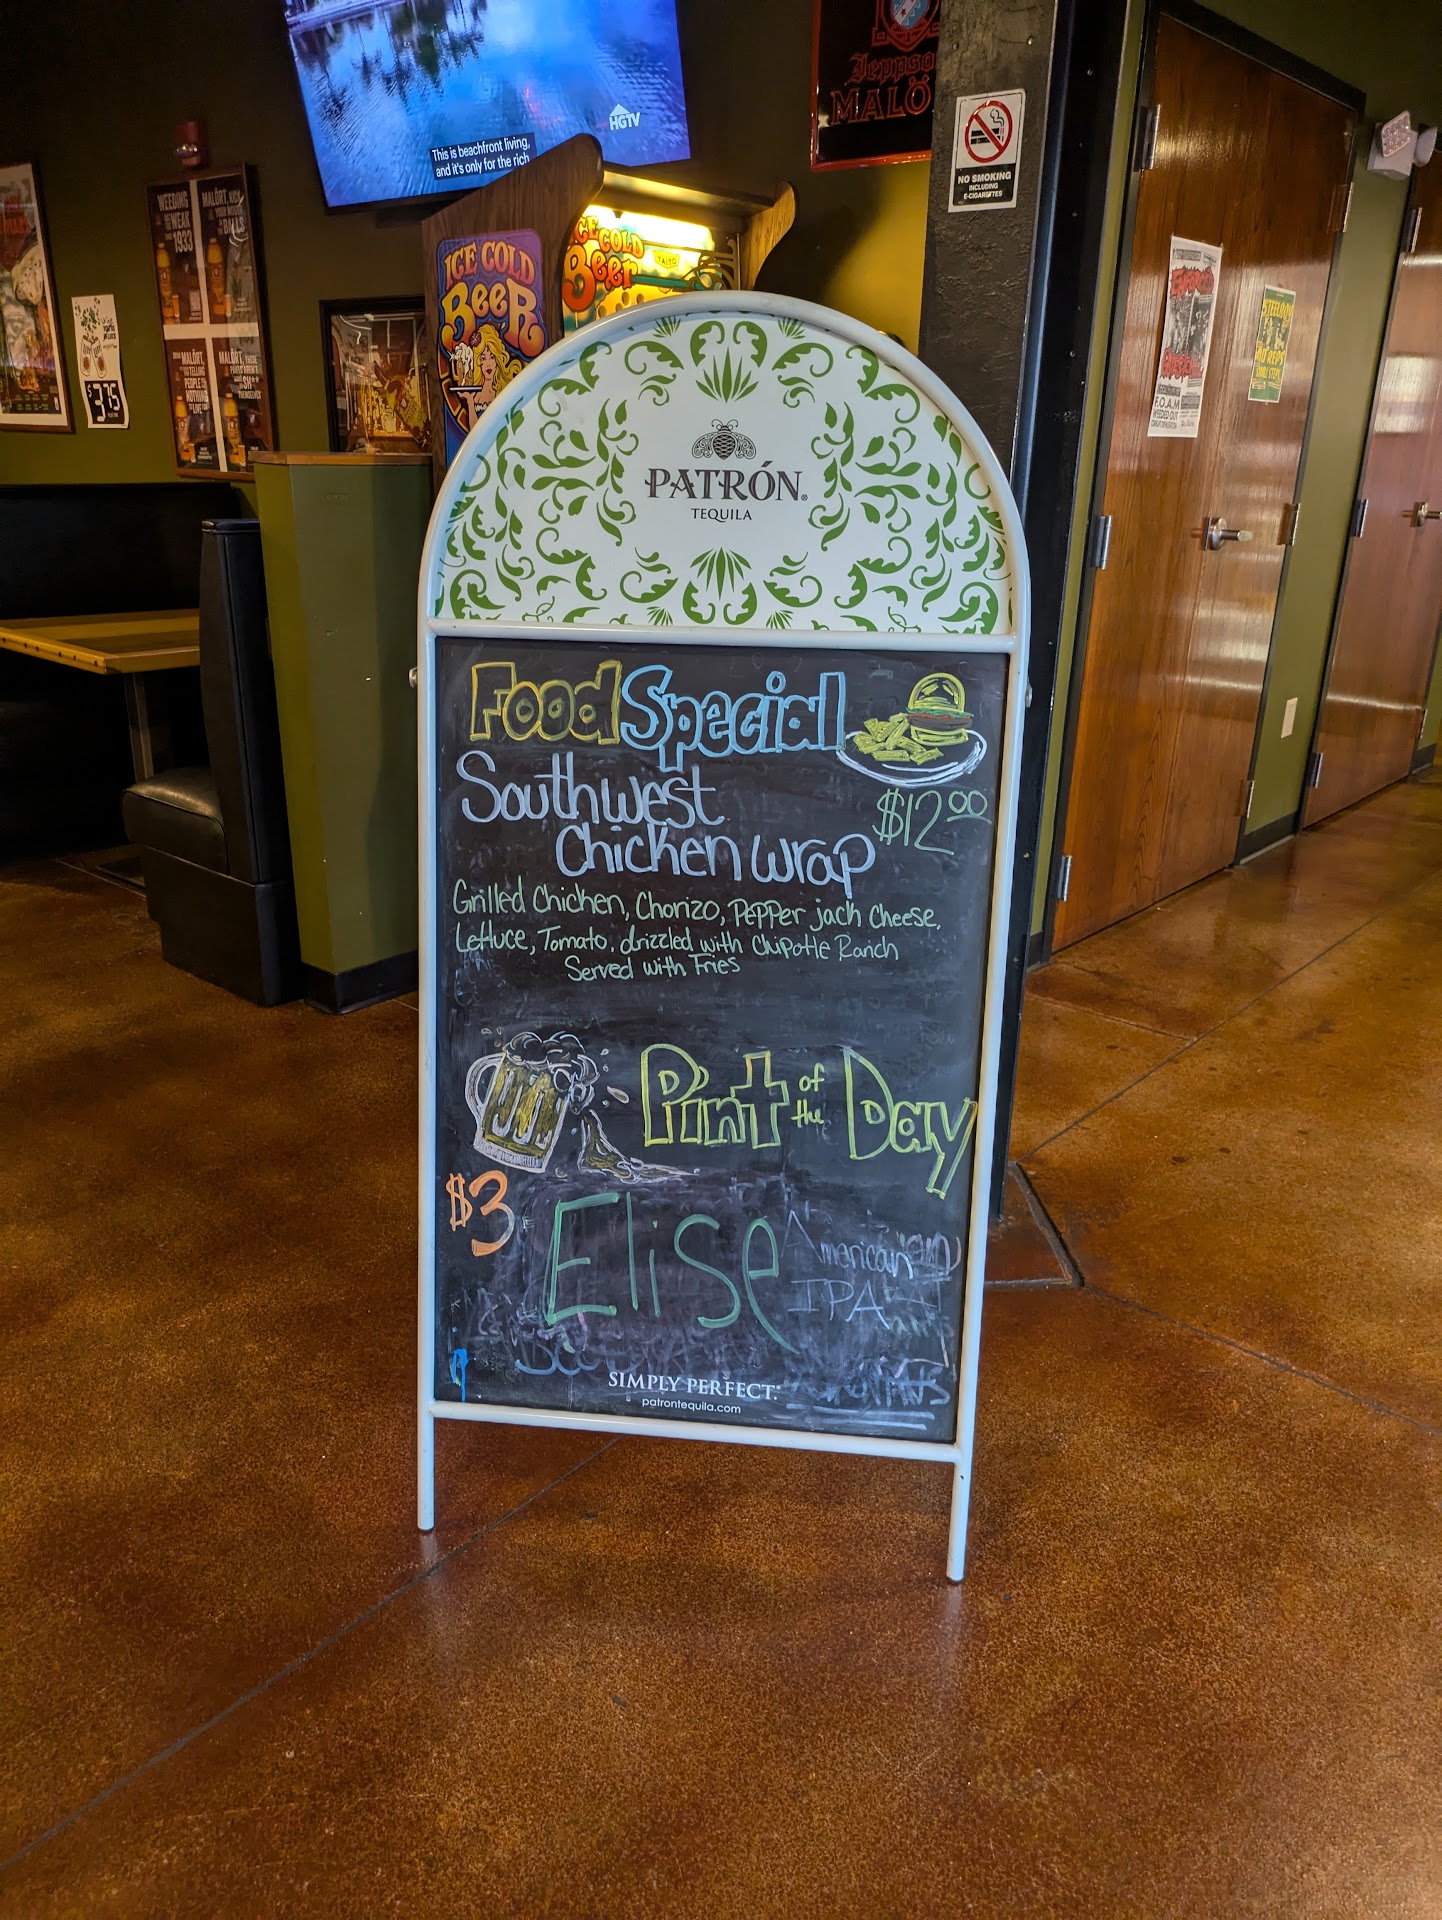 HGTV
This is beachfront living,
and it's only for the rich
Jeppso
MALÖ
NO SMOKING
INCLUDING
E-CIGARETTES
WEEDING
WEAK
1933
MALÖRT, KICK
BALLS
MALÖRT,
TELLING
PEOPLE
NOTHING
MALÖRT,
THEMSELVES
$3.75
ICE COLD
BEER
ICE COLD
Beer
TAITO
F.O.A.M
WEEDED OUT
STEELBOY
PATRÓN®
TEQUILA
Food Special
Southwest
$12.00
Chicken Wrap
Grilled Chicken, Chorizo, Pepper jack Cheese,
Lettuce, Tomato, drizzled with Chipotle Ranch
Served with Fries
Pint of the Day
$3
Elise American
IPA
SIMPLY PERFECT.
patrontequila.com